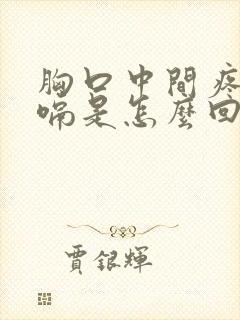 胸口中間疼
嗝是怎麼回
賈銀輝